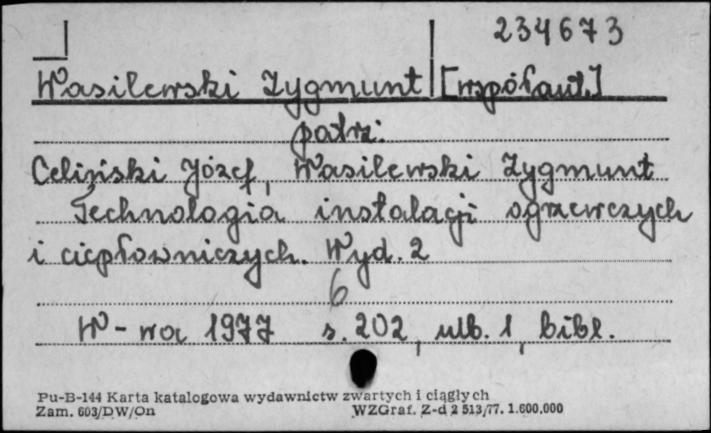 234673
Wasilewski Zygmunt [współaut.]
patrz:
Celiński Józef, Wasilewski Zygmunt
Technologia instalacji ogrzewczych
i ciepłowniczych. Wyd. 2
6
W-wa 1977 s. 202, ulb. 1, bibl.
Pu-B-144 Karta katalogowa wydawnictw zwartych i ciągłych
Zam. 603/DW/On WZGraf. Z-d 2 513/77. 1.600.000